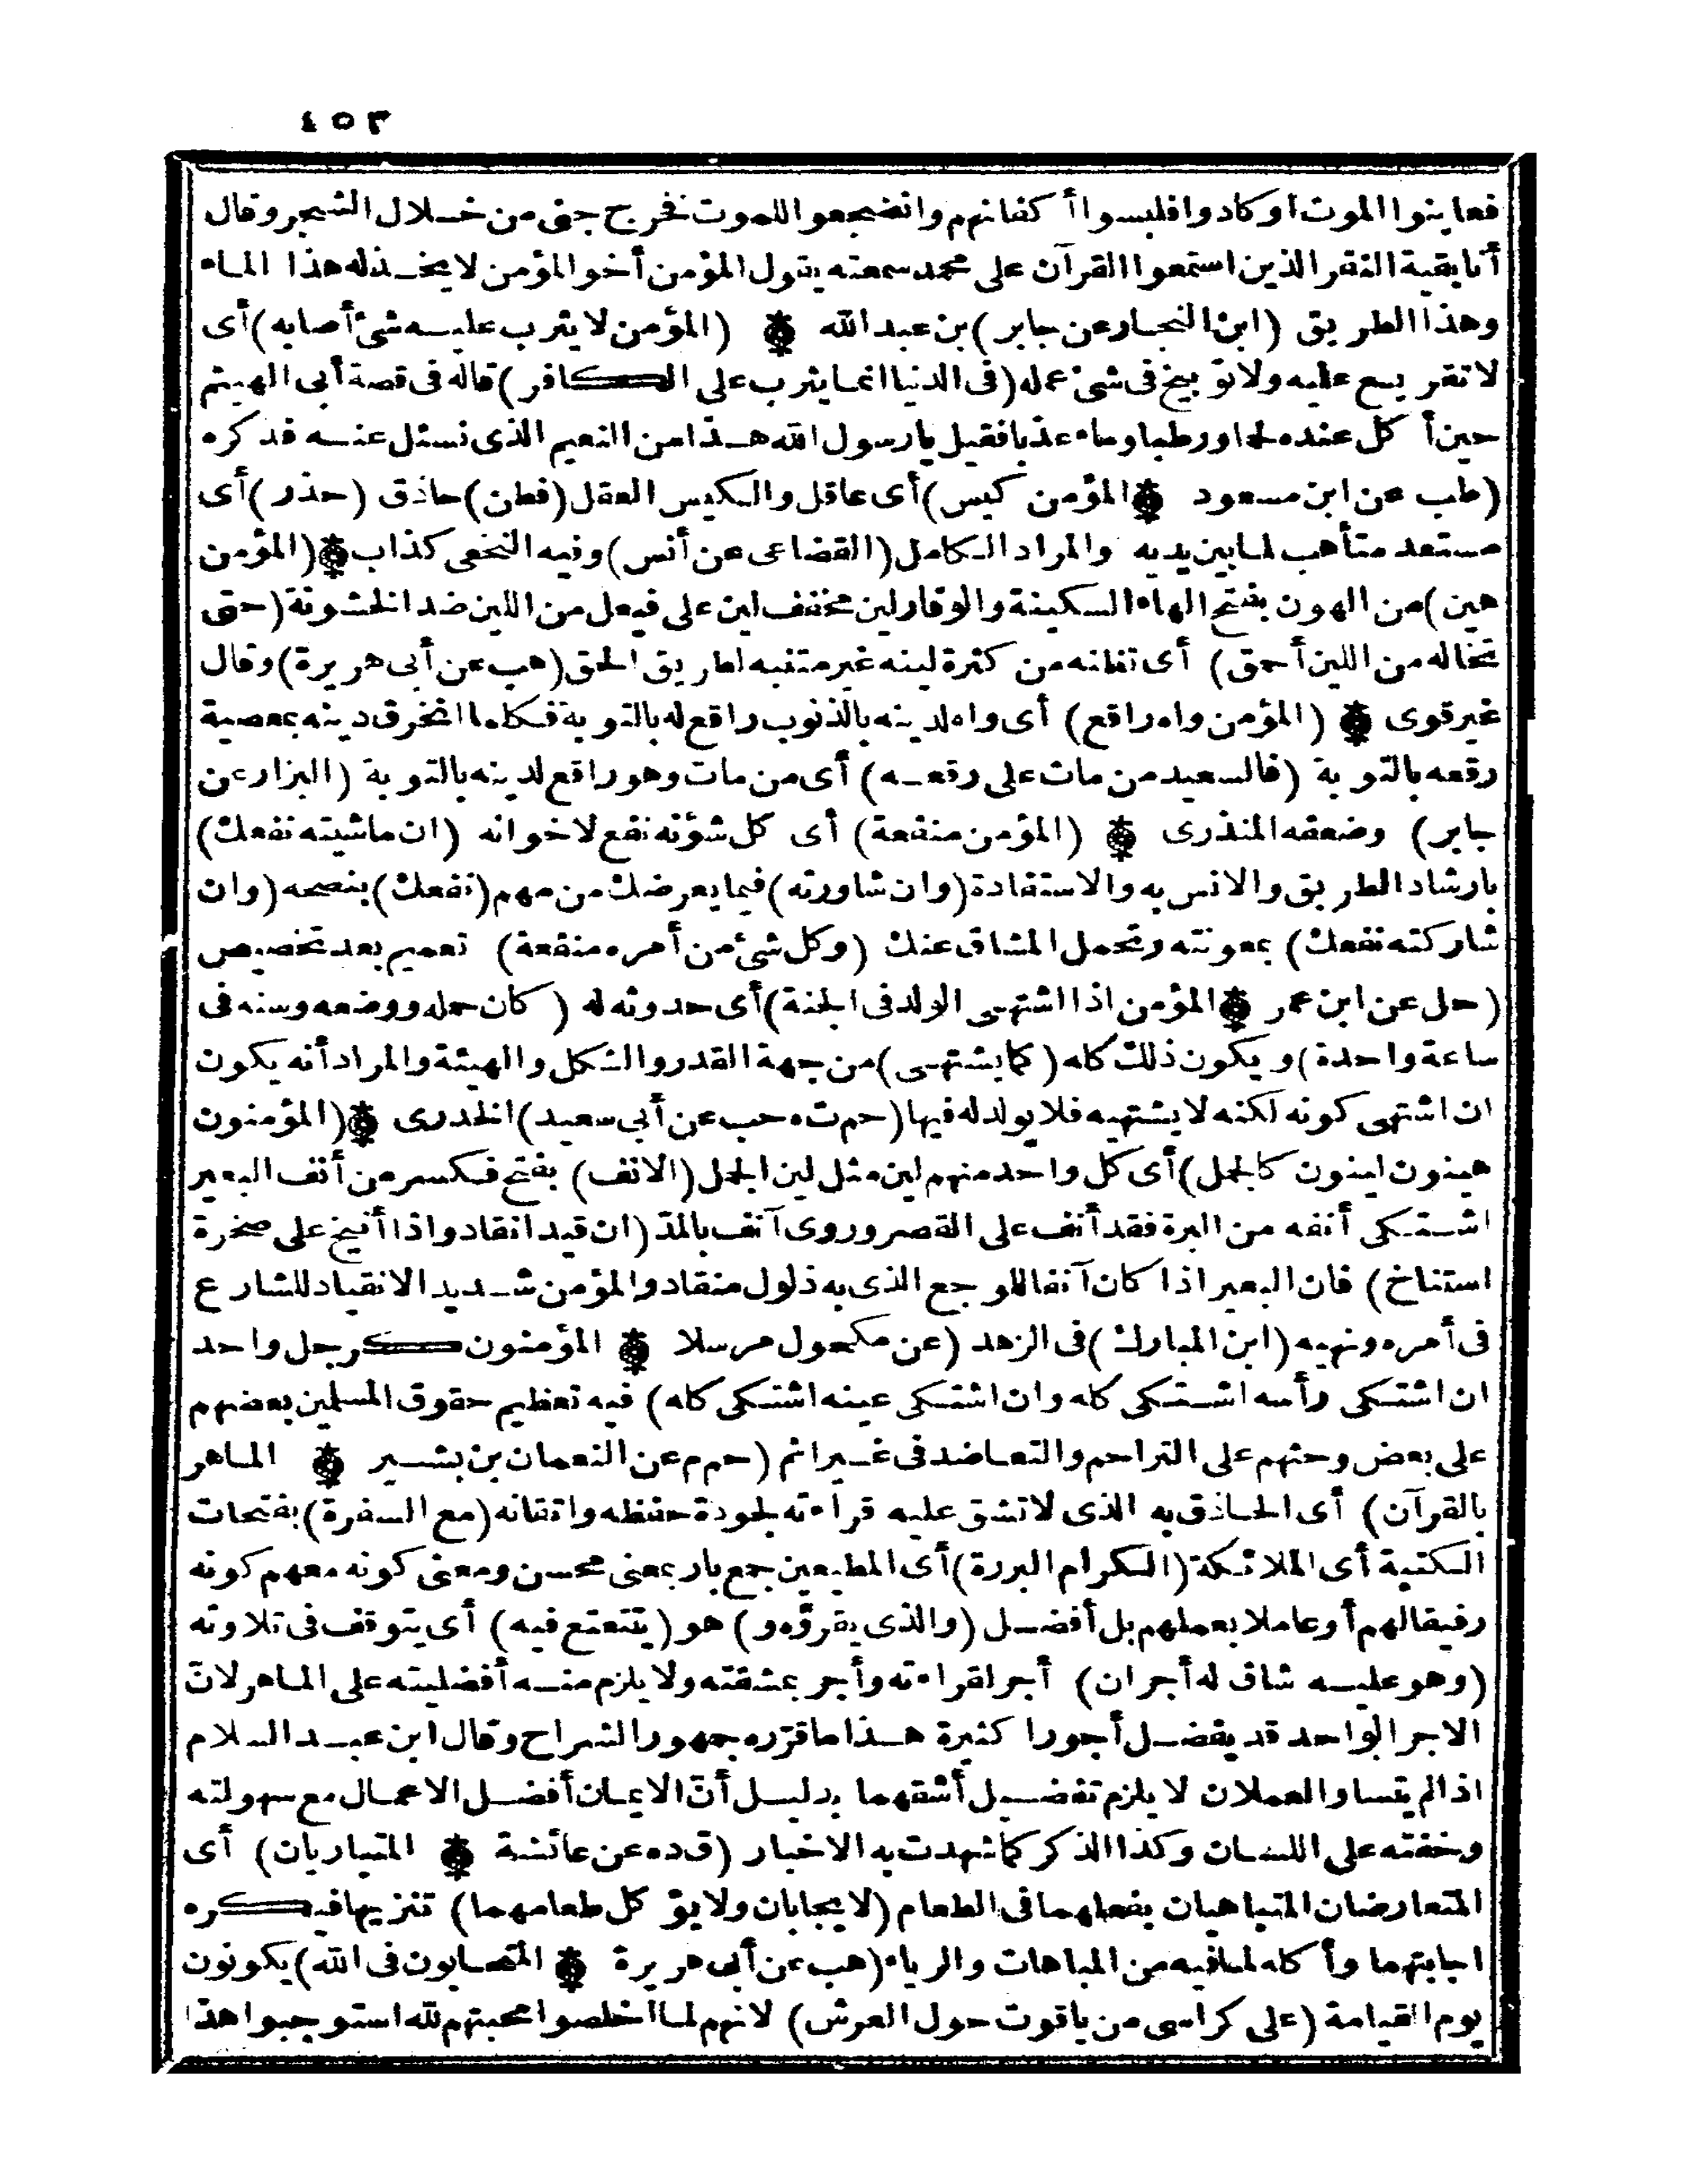 ٤٥٣
فعاينوا الموت أو كادوا فلبسوا أكفانهم واضجعوا للموت فخرج جنى من خلال الشجر وقال
أنا بقية النفر الذين استمعوا القرآن على محمد سمعته يقول المؤمن أخو المؤمن لا يخذله هذا الماء
وهذا الطريق (ابن النجار عن جابر) بن عبد الله ۞ (المؤمن لا يثرب عليه شئ أصابه) أى
لا تقريع عليه ولا توبيخ فى شئ عمله (فى الدنيا انما يثرب على الكافر) قاله فى قصة أبى الهيثم
حين أكل عنده لحما ورطبا وماء عذبا فقيل يا رسول الله هذا من النعيم الذى نسئل عنه فذكره
(طب عن ابن مسعود ۞ المؤمن كيس) أى عاقل والكيس العقل (فطن) حاذق (حذر) أى
مستعد متأهب لما بين يديه والمراد الكامل (القضاعى عن أنس) وفيه النخعى كذاب ۞ (المؤمن
هين) من الهون بفتح الهاء السكينة والوقار لين مخفف لين على فيعل من اللين ضد الخشونة (حتى
تخاله من اللين أحمق) أى تظنه من كثرة لينه غير متنبه لطريق الحق (هب عن أبى هريرة) وقال
غير قوى ۞ (المؤمن واه راقع) أى واه لدينه بالذنوب راقع له بالتوبة فكلما انخرق دينه بمعصية
رقعه بالتوبة (فالسعيد من مات على رقعه) أى من مات وهو راقع لدينه بالتوبة (البزار عن
جابر) وضعفه المنذرى ۞ (المؤمن منفعة) أى كل شؤنه نفع لاخوانه (ان ماشيته نفعك)
بارشاد الطريق والانس به والاستفادة (وان شاورته) فيما يعرضك من مهم (نفعك) بنصحه (وان
شاركته نفعك) بمعونته وتحمل المشاق عنك (وكل شئ من أمره منفعة) تعميم بعد تخصيص
(حل عن ابن عمر ۞ المؤمن اذا اشتهى الولد فى الجنة) أى حدوثه له (كان حمله ووضعه وسنه فى
ساعة واحدة) ويكون ذلك كله (كما يشتهى) من جهة القدر والشكل والهيئة والمراد أنه يكون
ان اشتهى كونه لكنه لا يشتهيه فلا يولد له فيها (حم ت ه حب عن أبى سعيد) الخدرى ۞ (المؤمنون
هينون لينون كالجمل) أى كل واحد منهم لين مثل لين الجمل (الانف) بفتح فكسر من أنف البعير
اشتكى أنفه من البرة فقد أنف على القصر وروى آنف بالمدّ (ان قيد انقاد واذا أنيخ على صخرة
استناخ) فان البعير اذا كان آنفا للوجع الذى به ذلول منقاد والمؤمن شديد الانقياد للشارع
فى أمره ونهيه (ابن المبارك) فى الزهد (عن مكحول مرسلا ۞ المؤمنون كرجل واحد
ان اشتكى رأسه اشتكى كله وان اشتكى عينه اشتكى كله) فيه تعظيم حقوق المسلمين بعضهم
على بعض وحثهم على التراحم والتعاضد فى غير اثم (حم م عن النعمان بن بشير ۞ الماهر
بالقرآن) أى الحاذق به الذى لا تشق عليه قراءته لجودة حفظه واتقانه (مع السفرة) بفتحات
الكتبة أى الملائكة (الكرام البررة) أى المطيعين جمع بار بمعنى محسن ومعنى كونه معهم كونه
رفيقا لهم أو عاملا بعملهم بل أفضل (والذى يقرؤه و) هو (يتتعتع فيه) أى يتوقف فى تلاوته
(وهو عليه شاق له أجران) أجر لقراءته وأجر بمشقته ولا يلزم منه أفضليته على الماهر لانّ
الاجر الواحد قد يفضل أجورا كثيرة هذا ما قرّره جمهور الشراح وقال ابن عبد السلام
اذا لم يتساو العملان لا يلزم تفضيل أشقهما بدليل أنّ الايمان أفضل الاعمال مع سهولته
وخفته على اللسان وكذا الذكر كما شهدت به الاخبار (ق د ه عن عائشة ۞ المتباريان) أى
المتعارضان المتباهيان بفعلهما فى الطعام (لا يجابان ولا يؤكل طعامهما) تنزيها فيكره
اجابتهما وأكله لما فيه من المباهات والرياء (هب عن أبى هريرة ۞ المتحابون فى الله) يكونون
يوم القيامة (على كراسى من ياقوت حول العرش) لانهم لما أخلصوا محبتهم لله استوجبوا هذا